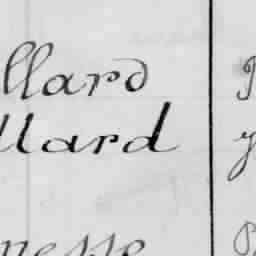 llard
llard
nesse